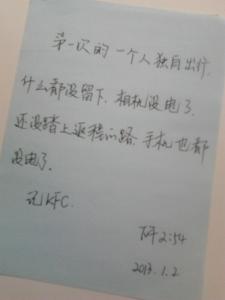 第一次的一个人独自出行.
什么都没留下. 相机没电了.
还没踏上返程的路. 手机也都
没电了.
记KFC.
下午2:54
2013.1.2